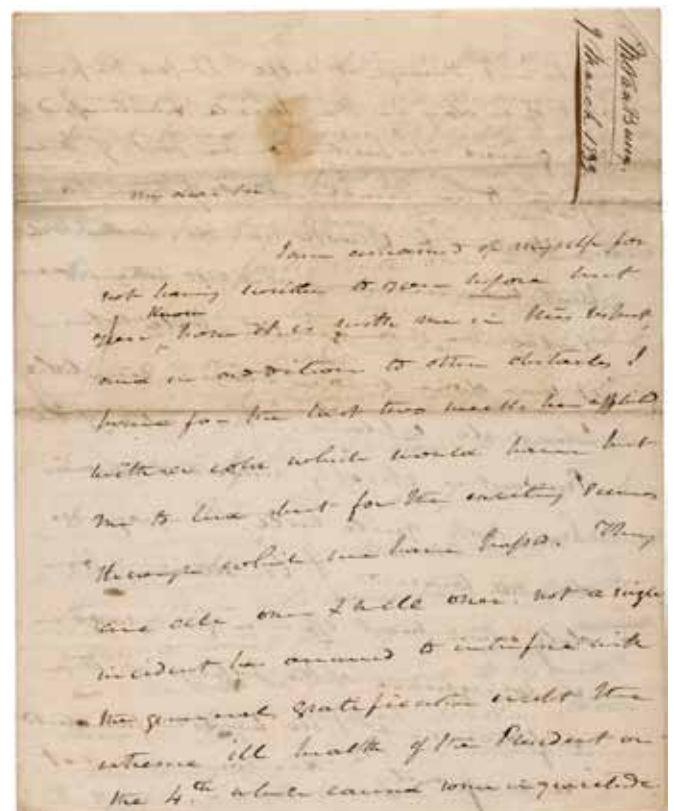 M Van Buren.
9 March
My dear Sir
I am ashamed of myself for
not having written to you before but
you know how it is with me in this respect,
and in addition to other obstacles I
have for the last two weeks been afflicted
with a cold which would have sent
me to bed but for the exciting scenes
through which we have passed. They
are all over & well over. not a single
incident has occurred to interfere with
the general gratification except the
extreme ill health of the President on
the 4th which caused some inquietude